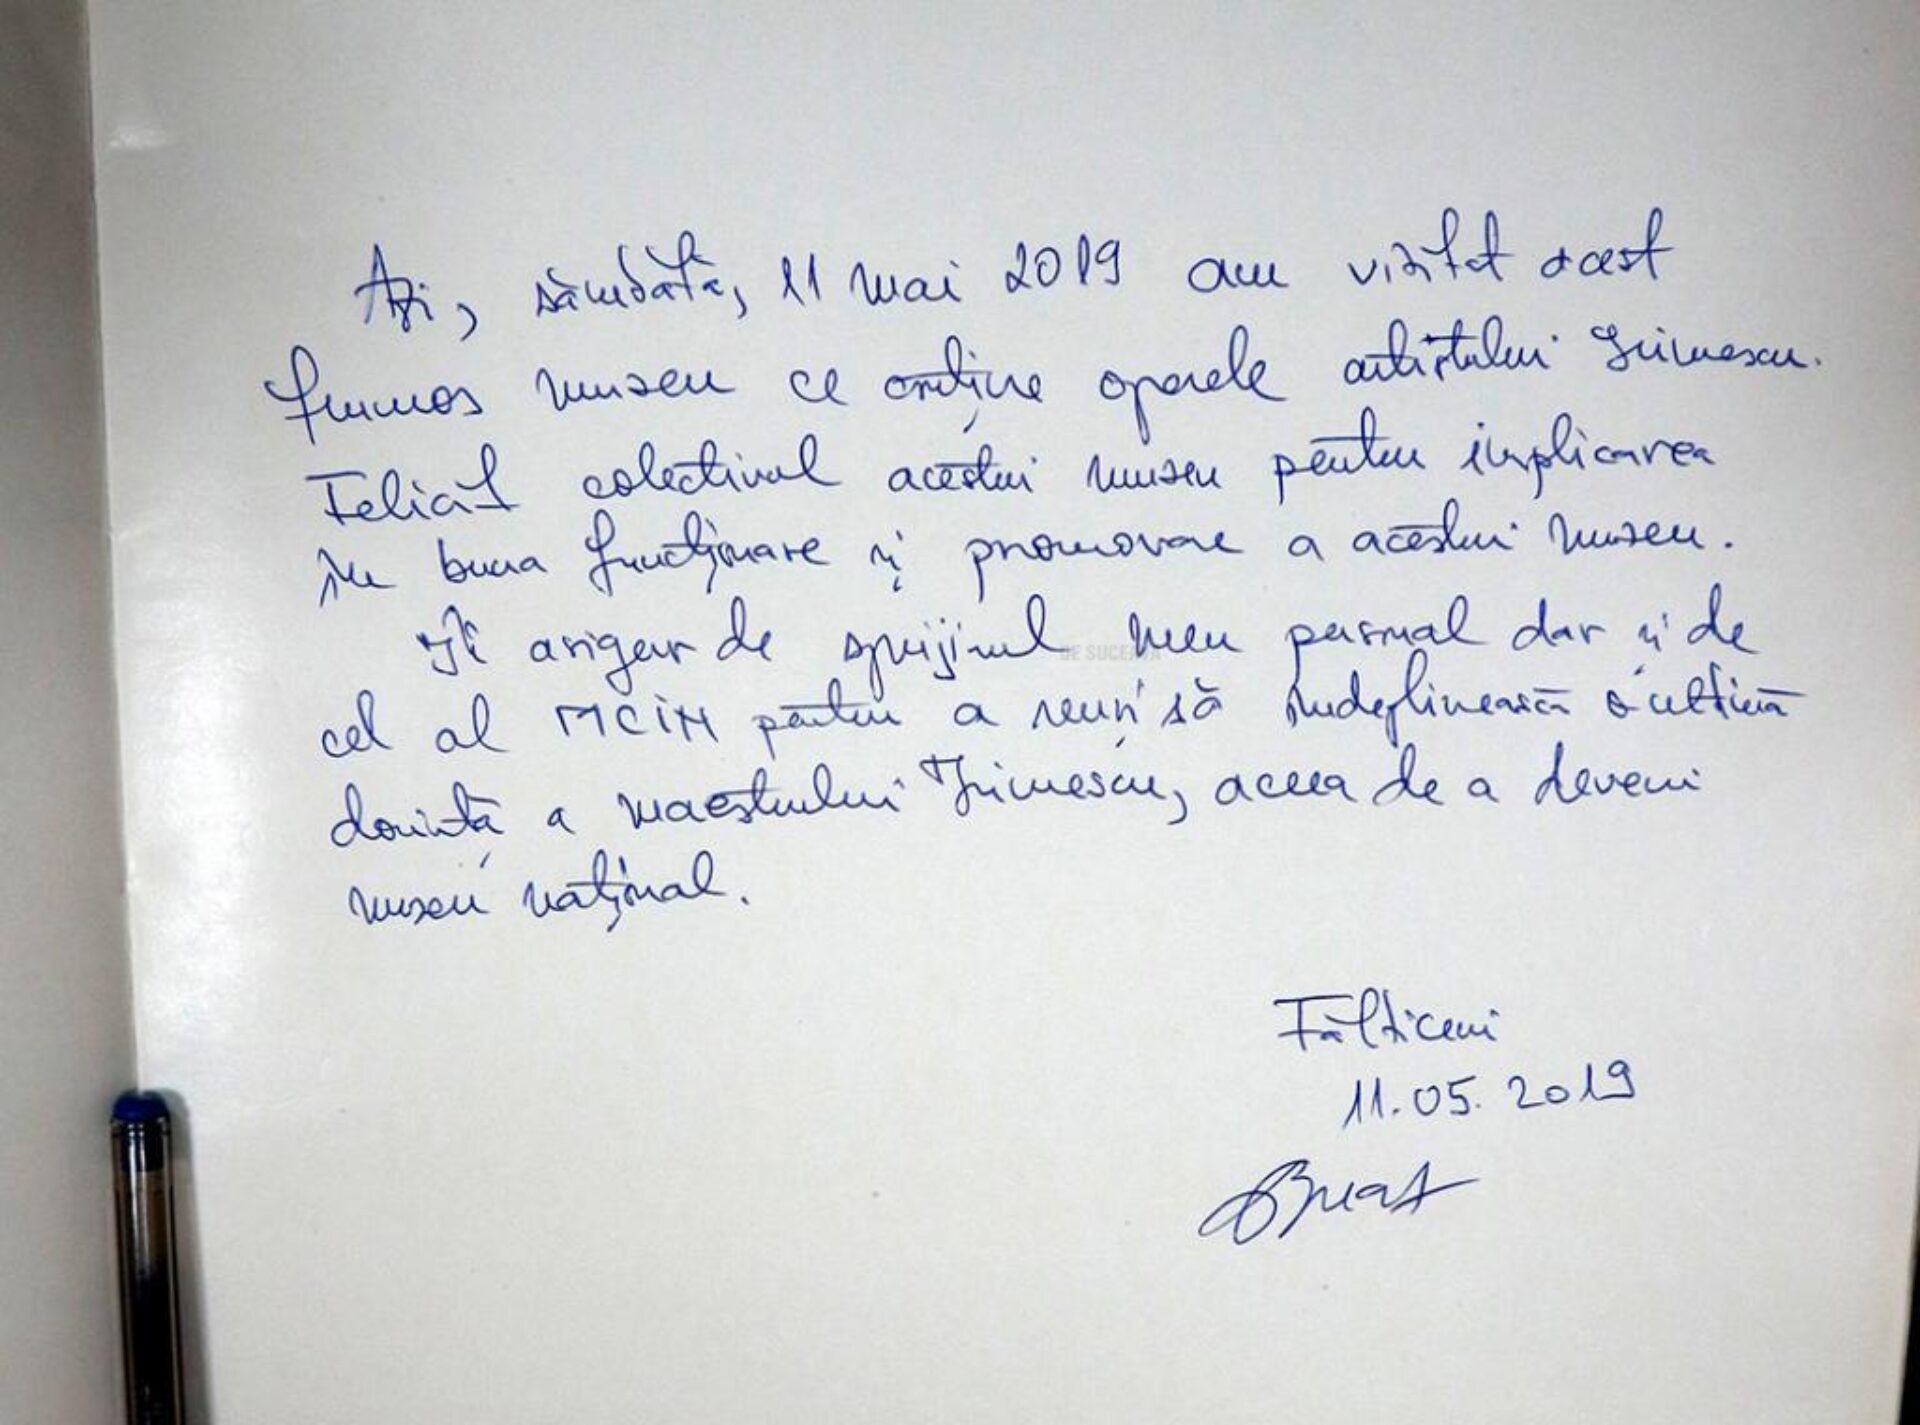 Azi, sâmbătă, 11 mai 2019 am vizitat acest
frumos muzeu ce conține operele artistului Irimescu.
Felicit colectivul acestui muzeu pentru implicarea
în buna funcționare și promovare a acestui muzeu.
Îi asigur de sprijinul meu personal dar și de
cel al MCIN pentru a reuși să îndeplinească o ultimă
dorință a maestrului Irimescu, aceea de a deveni
muzeu național.
Fălticeni
11.05.2019
DE SUCEAVA